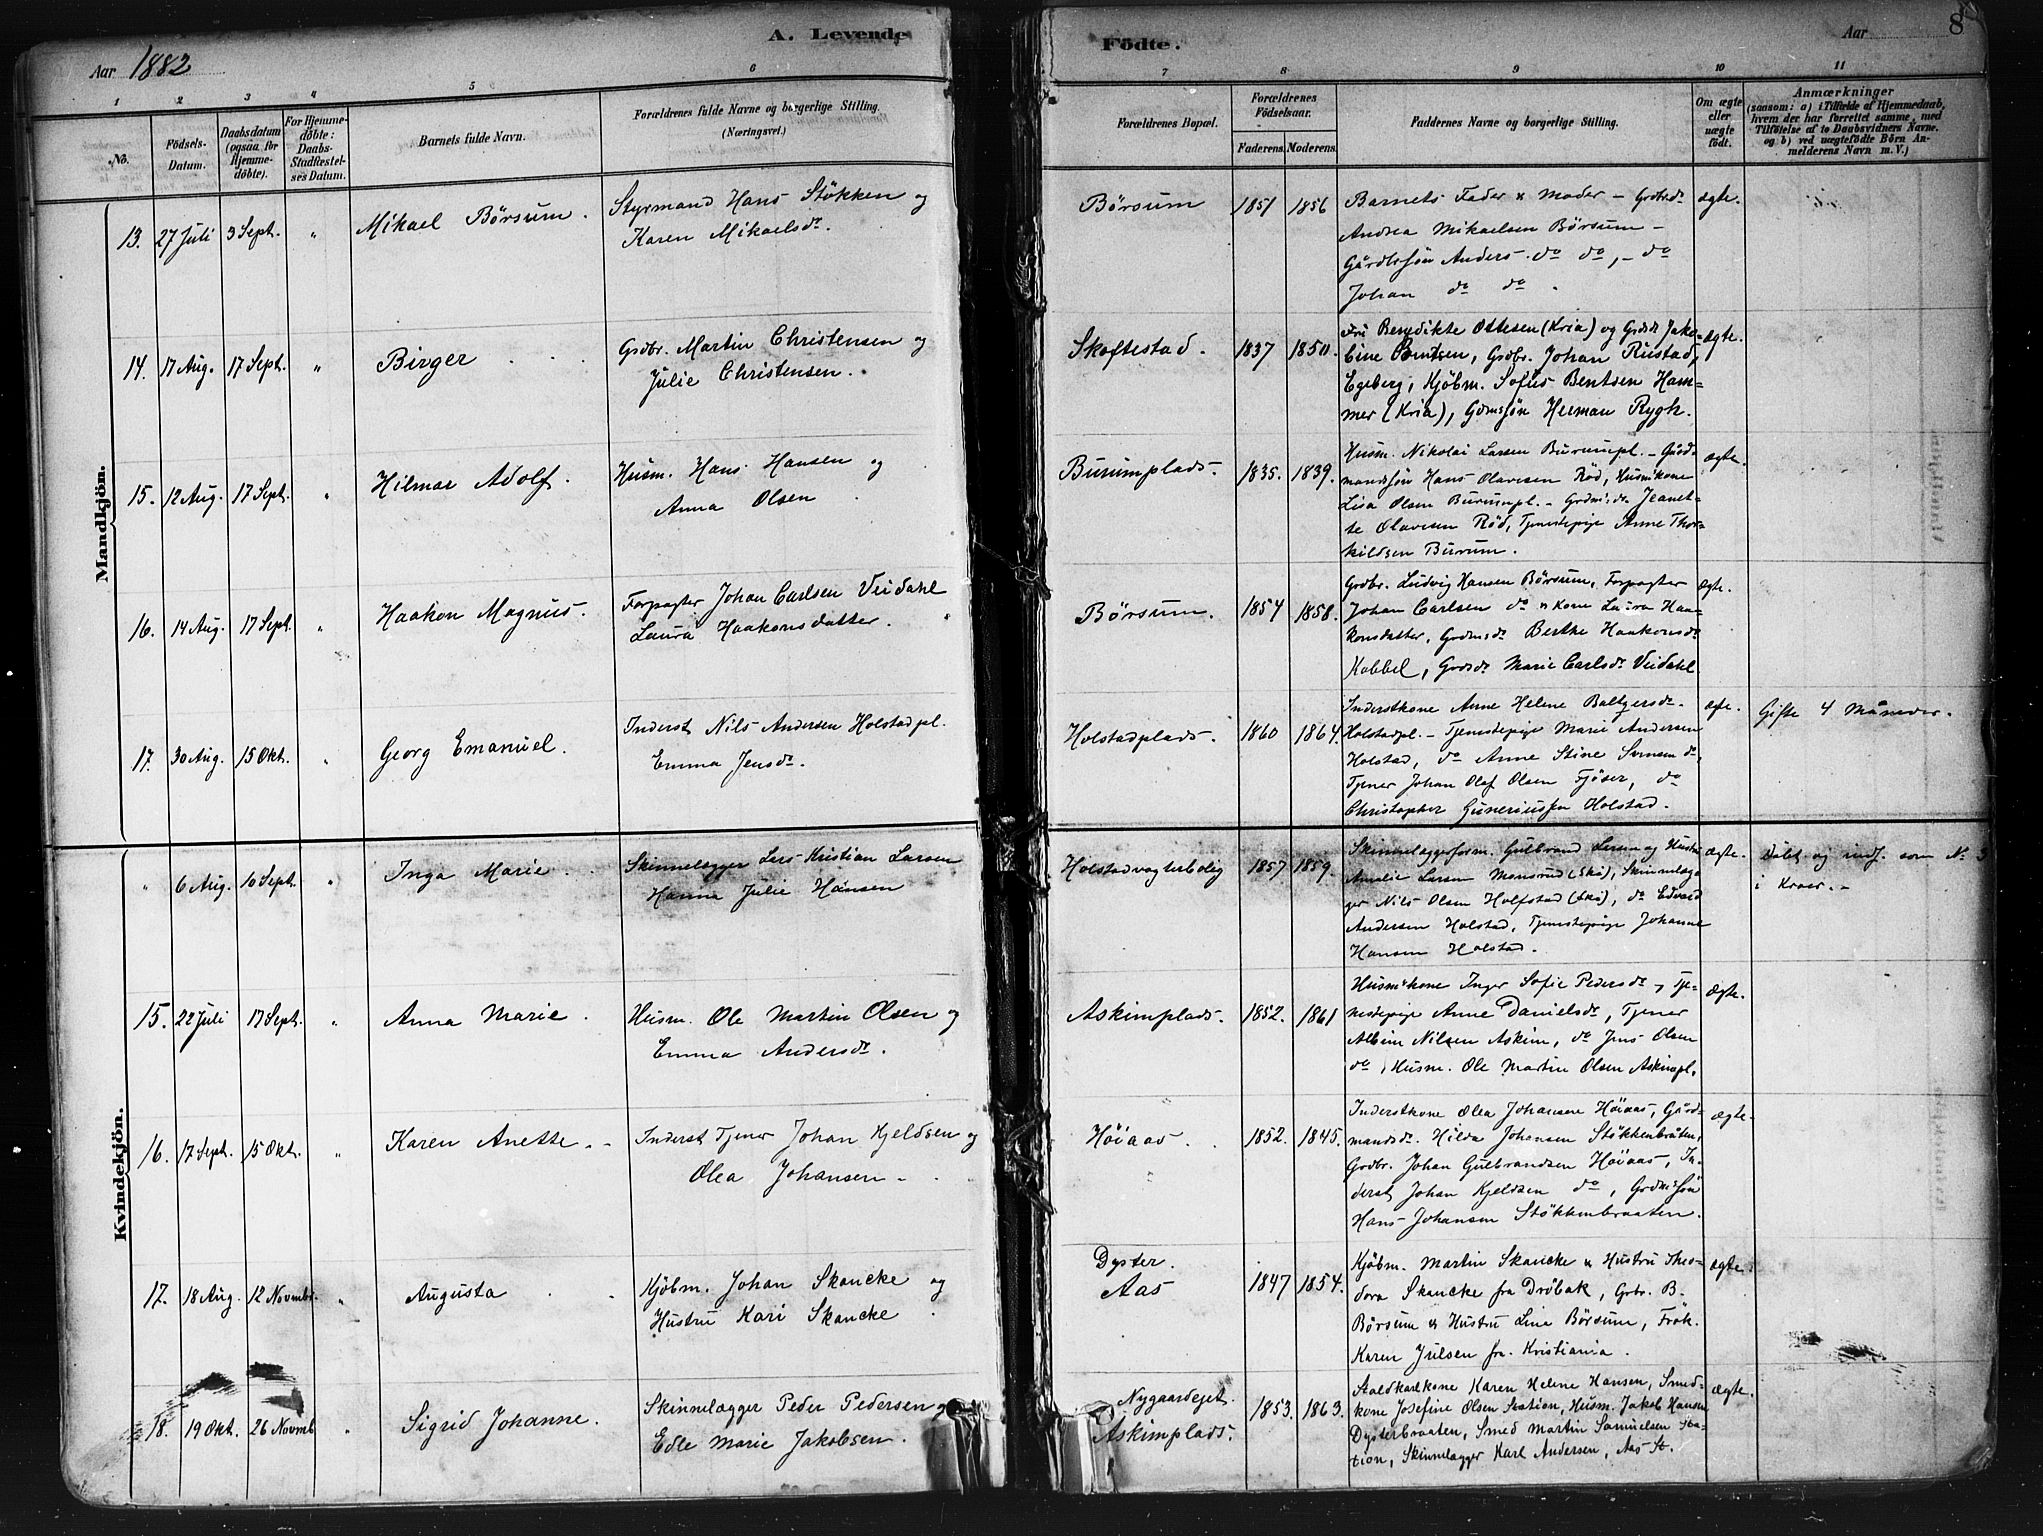 A. Levende
Födte.
Aar 1882
Aar
8
1 2 3 4 5 6 7 8 9 10 11
No.
Födsels-Datum.
Daabsdatum (ogsaa for Hjemmedöbte).
For Hjemmedöbte: Daabs-Stadfæstelses Datum.
Barnets fulde Navn.
Forældrenes fulde Navne og borgerlige Stilling. (Næringsvei.)
Forældrenes Bopæl.
Forældrenes Födselsaar.
Faderens. Moderens.
Faddernes Navne og borgerlige Stilling.
Om ægte eller uægte födt.
Anmærkninger
(saasom: a) i Tilfælde af Hjemmedaab, hvem der har forrettet samme, med Tilföielse af to Daabsvidners Navne. og b) ved uægtefödte Börn Anmelderens Navn m. V.)
Mandkjön.
13. 27 Juli 3 Sept. " Mikael Börsum.
Styrmand Hans Stökken og
Karen Mikaelsdr.
Börsum 1851 1856
Barnets Fader & Moder –
Andrea Mikaelsen Börsum –
Gårdbrsön Anders do do, – do
Johan do do.
ægte.
14. 17 Aug. 17 Sept. " Birger
Grdbr. Martin Christensen og
Julie Christensen.
Skoftestad. 1837 1850.
Fru Benedikte Ottesen (Kria) og Grdsdr Jako-
bine Berntsen, Grdbr. Johan Rustad,
Egeberg, Kjöbm. Sofus Bentsen Ham-
mer (Kria), Grdmsön Herman Rygh.
ægte.
15. 12 Aug. 17 Sept. " Hilmar Adolf.
Husm. Hans Hansen og
Anna Olsen
Burumplads. 1835. 1839.
Husm. Nikolai Larsen Burumpl. – Gård-
mandsön Hans Olavesen Röd, Husmkone
Lisa Olsen Burumpl. – Grdmsdr. Jeanet-
te Olavesen Röd, Tjenestepige Anne Thor-
kildsen Burum.
ægte.
16. 14 Aug. 17 Sept. " Haakon Magnus.
Forpagter Johan Carlsen Veidahl
Laura Haakonsdatter.
Börsum. 1854 1858.
Grdbr. Ludvig Hansen Börsum, Forpagter
Johan Carlsen do & Kone Laura Haa-
konsdatter, Grdmsdr Berthe Haakonsdr
Kabbel, Grdsdr Marie Carlsdr Veidahl
ægte.
17. 30 Aug. 15 Okt. " Georg Emanuel.
Inderst Nils Andersen Holstadpl.
Emma Jensdr.
Holstadplads. 1860 1864.
Inderstkone Anne Helene Baltgersdr.
Holstadpl. – Tjenestepige Marie Andersen
Holstad, do Anne Stine Svensen do,
Tjener Johan Olaf Olsen Fjöser, do
Christopher Guneriussen Holstad.
ægte.
Gifte 4 Måneder.
Kvindekjön.
" 6 Aug. 10 Sept. " Inga Marie
Skinnelægger Lars Kristian Larsen
Hanna Julie Hansen
Holstadvogterbolig 1857 1859.
Skinnelæggerform. Gulbrand Larsen og Hustru
Amalie Larsen Monsrud (Ski), Skinnelæg-
ger Nils Olsen Holfstad (Ski), do Edvard
Andersen Holstad, Tjenestepige Johanne
Hansen Holstad.
ægte.
Døbt og indf. som No 3
i Kroer. –
15. 22 Juli 17 Sept. " Anna Marie.
Husm. Ole Martin Olsen og
Emma Andersdr.
Askimplads. 1852. 1861
Husmkone Inger Sofie Pedersdr, Tje-
nestepige Anne Danielsdr, Tjener
Albin Nilsen Askim, do Jens Olsen
do, Husm. Ole Martin Olsen Askimpl.
ægte.
16. 17 Sept. 15 Okt. " Karen Anette. –
Inderst Tjener Johan Kjeldsen og
Olea Johansen –
Höiaas. 1852. 1845.
Inderstkone Olea Johansen Höiaas, Gård-
mandsdr. Hilda Johansen Stökkenbråten,
Grdbr. Johan Gulbrandsen Höiaas, In-
derst Johan Kjeldsen do, Grdmssön
Hans Johansen Stökkenbraaten.
ægte.
17. 18 Aug. 12 Novmbr. " Augusta
Kjöbm. Johan Skancke og
Hustru Kari Skancke
Dyster.
Aas 1847 1854.
Kjöbm. Martin Skancke & Hustru Theo-
dora Skancke fra Dröbak, Grbr. B.
Börsum & Hustru Lina Börsum, Frök.
Karen Juelsen fra Kristiania.
ægte.
18. 19 Okt. 26 Novmb. " Sigrid Johanne.
Skinnelægger Peder Pedersen og
Edle Marie Jakobsen.
Nygaardejet.
Askimplads. 1853. 1863.
Staldkarlkone Karen Helene Hansen, Smed-
kone Josefine Olsen Station, Husm. Jakob Hansen
Dysterbraaten, Smed Martin Samuelsen Sta-
tion, Skinnelægger Karl Andersen, Aas St.
ægte.